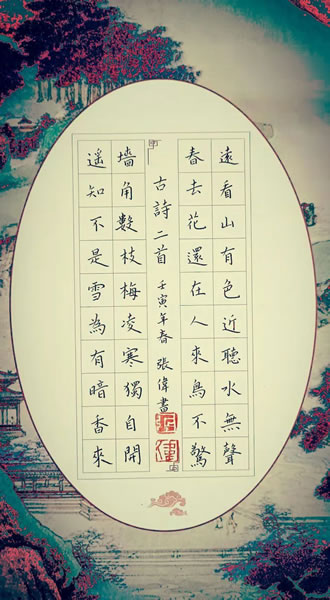 遠看山有色近聽水無聲
春去花還在人來鳥不驚
古詩二首 壬寅年春 張偉書
張偉
墻角數枝梅凌寒獨自開
遥知不是雪為有暗香來